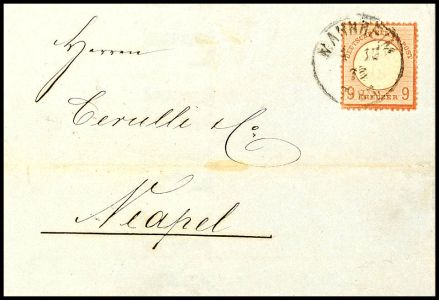 MANNHEIM
DEUTSCHE REICHS-POST
9 KREUZER 9
Herren
Cerulli & Co
Neapel